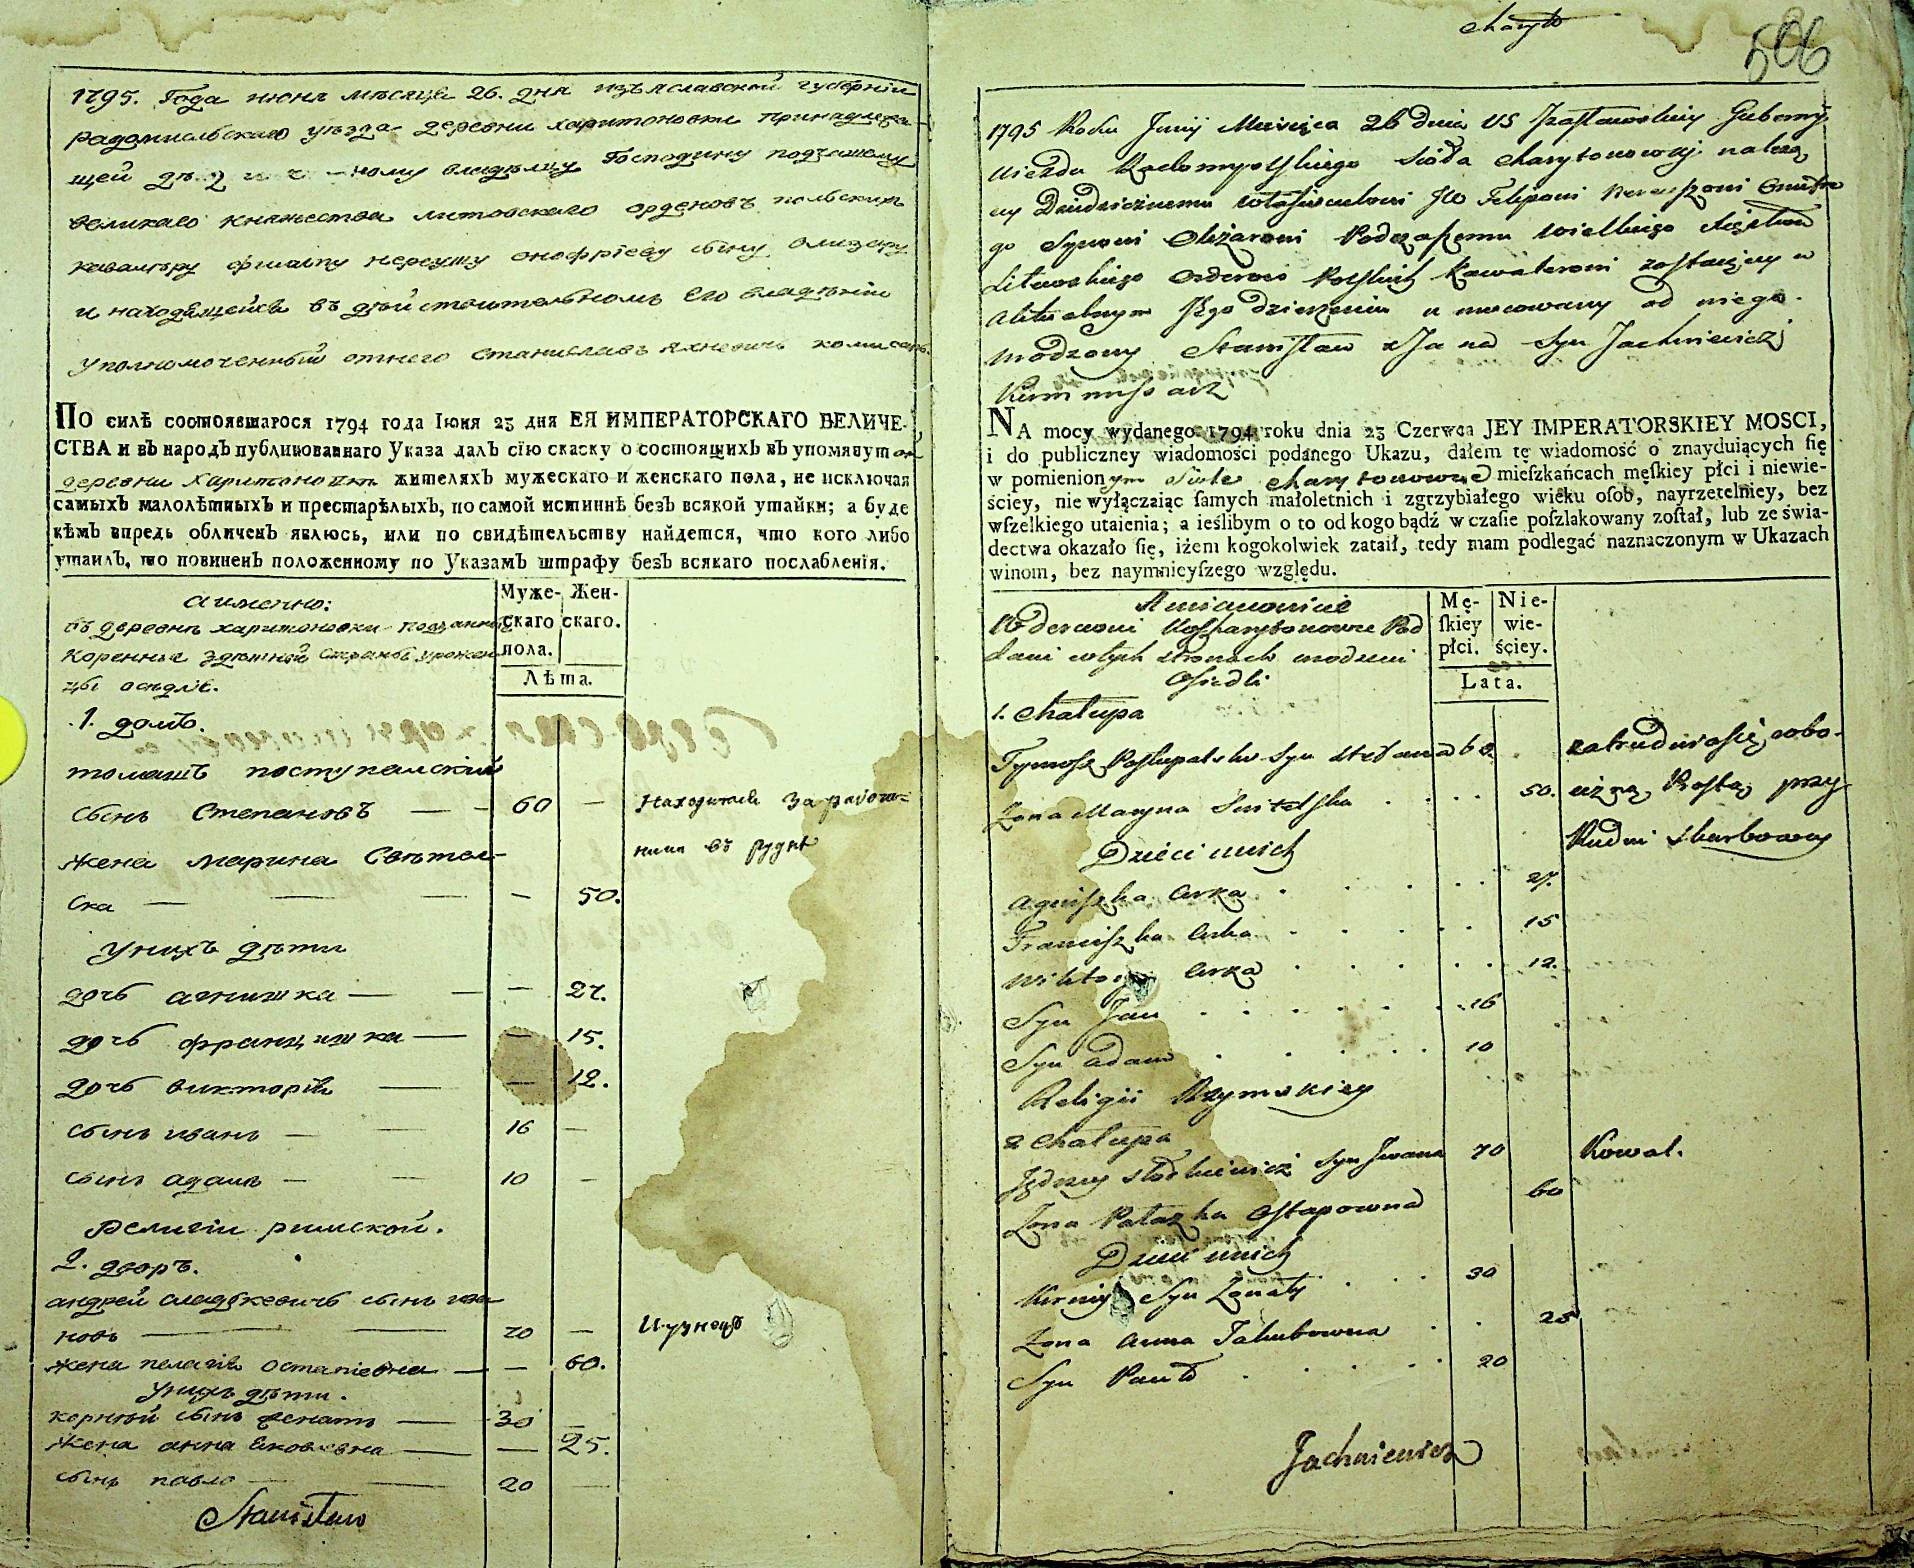 1795. Года июня мѣсяца 26. дня изъяславской губернiи
радомысльскаго уѣзда деревни харитоновки принадлежа-
щей ному владѣльцу Господину подчашему
великаго княжества литовскаго орденовъ польскихъ
кавалеру филипу нерезушу онофрiеву сыну олизару
и находящейся въ дѣйствительномъ его владѣнiи
уполномоченный отнего Станиславъ яхневичъ комисаръ.
ПО силѣ состоявшагося 1794 года Iюня 23 дня ЕЯ ИМПЕРАТОРСКАГО ВЕЛИЧЕ-
СТВА и въ народъ публикованнаго Указа далъ сiю скаску о состоящихъ въ упомянутой
деревни Харитоновкѣ жителяхъ мужескаго и женскаго пола, не исключая
самыхъ малолѣтныхъ и престарѣлыхъ, по самой истиннѣ безъ всякой утайки; а буде
кѣмъ впредь обличенъ явлюсь, или по свидѣтельству найдется, что кого либо
утаилъ, то повиненъ положенному по Указамъ штрафу безъ всякаго послабленiя.
аименно:
въ деревнѣ харитоновки подданные
коренные здѣшной стараны урожен
цы оседлiе.
Муже-скаго пола. Жен-скаго.
Лѣта.
1. домъ.
томашъ поступальскiй
сынъ Степановъ — 60 — Находится за работ-
жена марина Свѣтель- ника въ рудне
ска — — 50.
Унихъ дѣти
дочь агнишка — — 27.
дочь францишка — — 15.
дочь викторiя — — 12.
сынъ иванъ — 16 —
сынъ адамъ — 10 —
Религiи римской.
2. дворъ.
андрей сладкевичъ сынъ ива
новъ — 70 — Кузнецъ
жена пелагiя остапiевна — — 60.
Унихъ дѣти.
керный сынъ женатъ — 30 —
жена анна яковлевна — — 25.
сынъ павло — 20 —
Stanisław
Charyto
506
1795 Roku Junij Miesięca 26 dnia US Izasławskiey Guberny
Uiezdu Radomysłskiego Sioła Charytonowki należą
cy Dziedzicznemu właścicielowi Filiponi Onufre
go Synowi Olizarowi Podczaszemu Wielkiego Xięstwa
Litewskiego Orderow Polskich Kawalerowi zostaiący w
Aktualnym Jego dzierżeniu umocowany od niego
urodzony Stanisław Jana Syn Jachniewicz
Kommissarz
NA mocy wydanego 1794 roku dnia 23 Czerwca JEY IMPERATORSKIEY MOSCI,
i do publiczney wiadomości podanego Ukazu, dałem tę wiadomość o znayduiących ſię
w pomienionym Siole Charytonowce mieſzkańcach męſkiey płci i niewie-
ściey, nie wyłączaiąc ſamych małoletnich i zgrzybiałego wieku oſob, nayrzetelniey, bez
wſzelkiego utaienia; a ieślibym o to od kogo bądź w czaſie poſzlakowany zoſtał, lub ze świa-
dectwa okazało ſię, iżem kogokolwiek zataił, tedy mam podlegać naznaczonym w Ukazach
winom, bez naymnieyſzego względu.
Amianowicie
Wderewni Charytonowce Pod
dani wtych stronach urodzeni
Osiedli
Mę-ſkiey płci. Nie-wie-ściey.
Lata.
1. Chałupa
Tymosz Postupalski Syn Stefana 60. zatrudnia się robo-
Zona Maryna Switelska 50. cizną Prostą przy
Dzieci unich Rudni skarbowey
Agniszka Corka 27.
Franciszka Corka 15
Wiktorya Corka 12.
Syn Jan 16
Syn Adam 10
Religii Rzymskiey
2 Chałupa
Jędrzey Słodkiewicz Syn Jwana 70 Kowal.
Zona Pałazka Ostapowna 60
Dzieci unich
Kirniy Syn Zonaty 30
Zona Anna Jakubowna 25
Syn Pawło 20
Jachniewicz